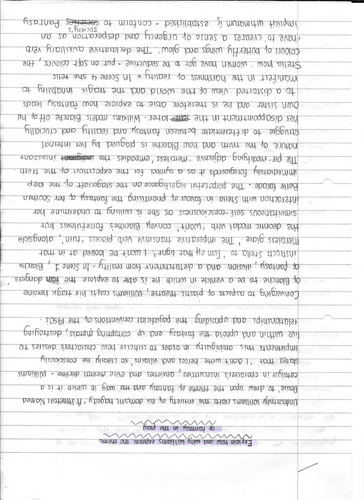 Explain how and why williams explores the theme
of fantasy in the play
Undeniably Williams roots the entirety of his domestic tragedy, 'A Streetcar Named
Desire' to draw upon the theme of fantasy and the way in which it is a
catalyst in characters' insecurities, anxieties and even mental decline - Williams
stated that 'I don't write heroes and villains', so clearly he consciously
implements this ambiguity in order to criticise how characters desires to
live within and uphold the fantasy end up corrupting
destroying
relationships and
the
conventions of the 1950s.
Converging to aspects of plastic theatre, Williams crafts his tragic heroine
of Blanche to be a vehicle in which he is able to explore the dangers
of fantasy, illusion and detachment from reality - In Scene 1, Blanche
instructs Stella to, 'turn off that light! I won't be looked at in that
merciless glare'. The imperative transitive verb process, 'turn', alongside
the deontic modal verb, 'won't', convey Blanches forcefulness but
simultaneous self-consciousness as she is willing to undermine her
interaction with Stella in favour of prioritising the fantasy of her Southern
Belle facade. The
of the lamp
immediately foregrounds it as a symbol for the exposition of the truth
The pre-modifying adjective 'merciless' embodies the
nature of the truth and how Blanche is plagued by her internal
struggles to differentiate between fantasy and reality and crucially
her disappointment in the latter. Williams models Blanche off of his
own sister and he is therefore able to explore how fantasy leads
to a distorted view of the world and the tragic inability to
manifest in the harshness of reality. In Scene 4 she tells
Stella how 'women have got to be seductive - put on soft colors, the
colors of butterfly wings and glow'. The
auxiliary verb
'have to' creates a sense of urgency and desperation as an
implicit
is established - conform to society's fantasy